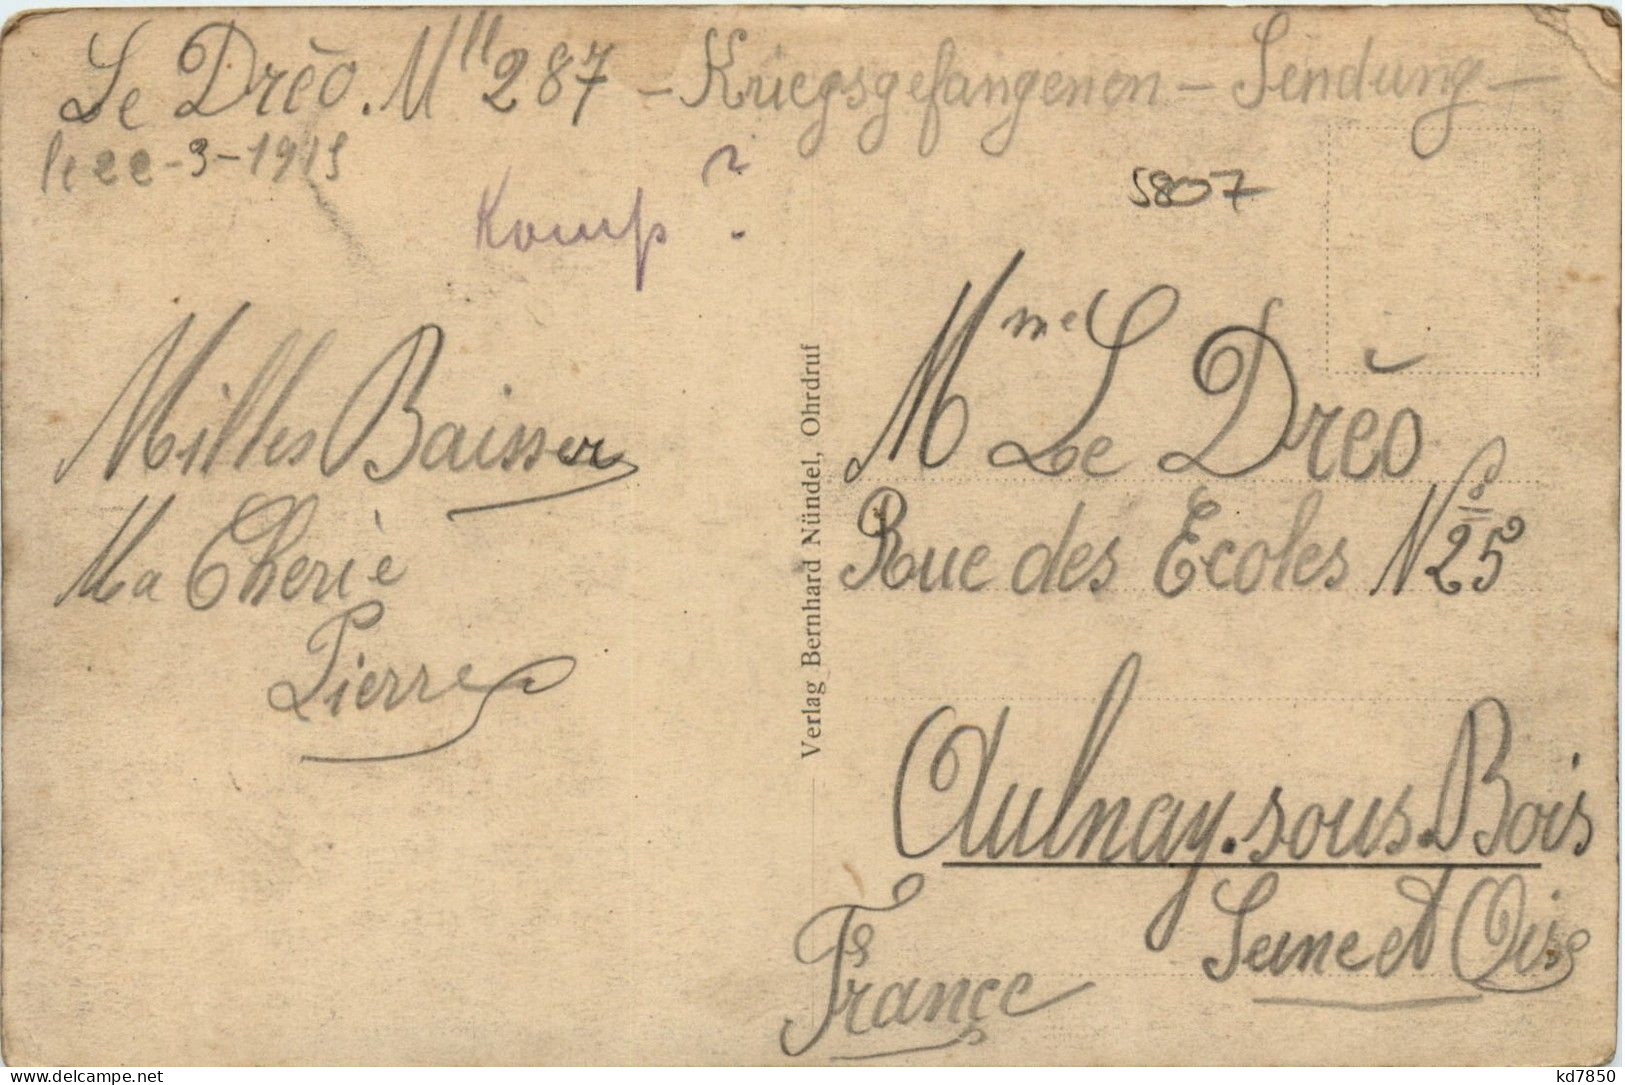 Le Drĕo. Mll 287 - Kriegsgefangenen - Sendung -
le 22-3-1915
Komp ?
5807
Milles Baisser
Ma Cheriè
Pierre
Verlag Bernhard Nündel, Ohrdruf
Mme Le Drĕo
Rue des Ecoles No 25
Aulnay-sous-Bois
Seine et Oise
France
www.delcampe.net
kd7850